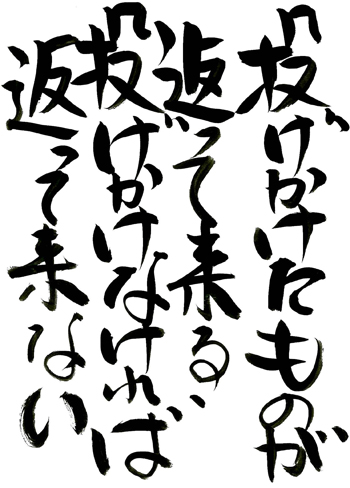 投げかけたものが
返って来る、
投げかけなければ
返って来ない